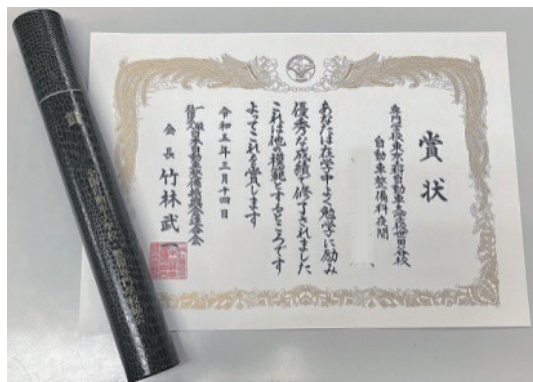 賞状
専門学校東京工科自動車大学校世田谷校
自動車整備科夜間
あなたは在学中よく勉学に励み
優秀な成績で修了されました
これは他の模範とするところです
よってこれを賞します
令和五年三月十四日
会長 竹林武一